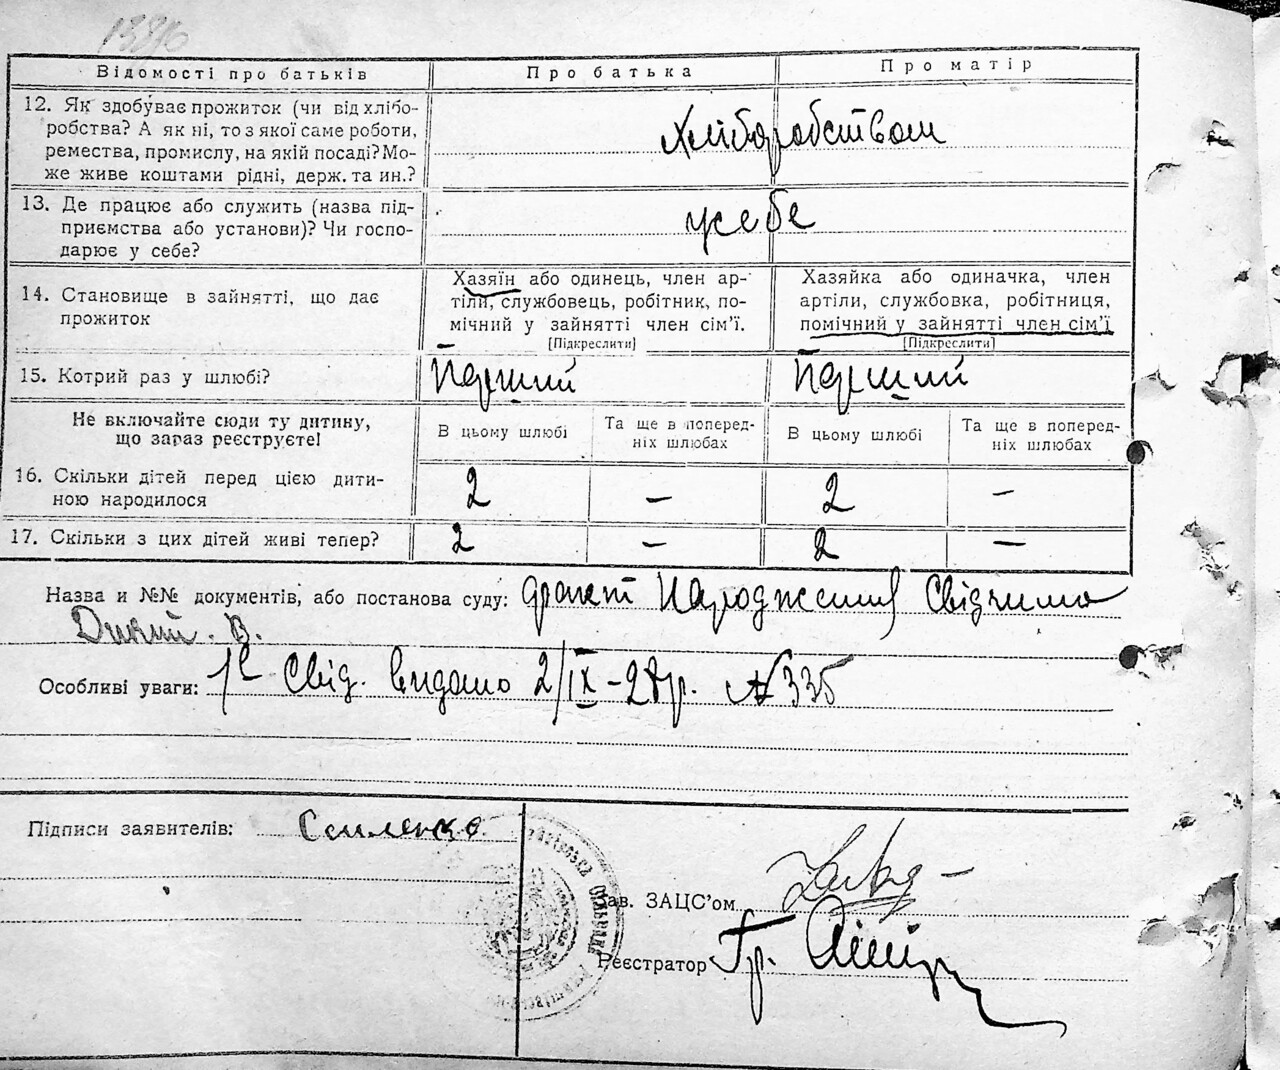 Відомості про батьків
Про батька
Про матір
12. Як здобуває прожиток (чи від хлібо-
робства? А як ні, то з якої саме роботи,
ремества, промислу, на якій посаді? Мо-
же живе коштами рідні, держ. та ин.?
Хліборобством
13. Де працює або служить (назва під-
приємства або установи)? Чи госпо-
дарює у себе?
усебе
14. Становище в зайнятті, що дає
прожиток
Хазяїн або одинець, член ар-
тіли, службовець, робітник, по-
мічний у зайнятті член сім’ї.
[Підкреслити]
Хазяйка або одиначка, член
артіли, службовка, робітниця,
помічний у зайнятті член сім’ї
[Підкреслити]
15. Котрий раз у шлюбі?
Перший
Перший
Не включайте сюди ту дитину,
що зараз реєструєте!
В цьому шлюбі
Та ще в поперед-
ніх шлюбах
В цьому шлюбі
Та ще в поперед-
ніх шлюбах
16. Скільки дітей перед цією дити-
ною народилося
2 — 2 —
17. Скільки з цих дітей живі тепер?
2 — 2 —
Назва и №№ документів, або постанова суду: факт Народження Свідчила
В.
Особливі уваги: Свід. видано 2/IX-28р. №335
Підписи заявителів:
Зав. ЗАЦС’ом
Реєстратор Гр.